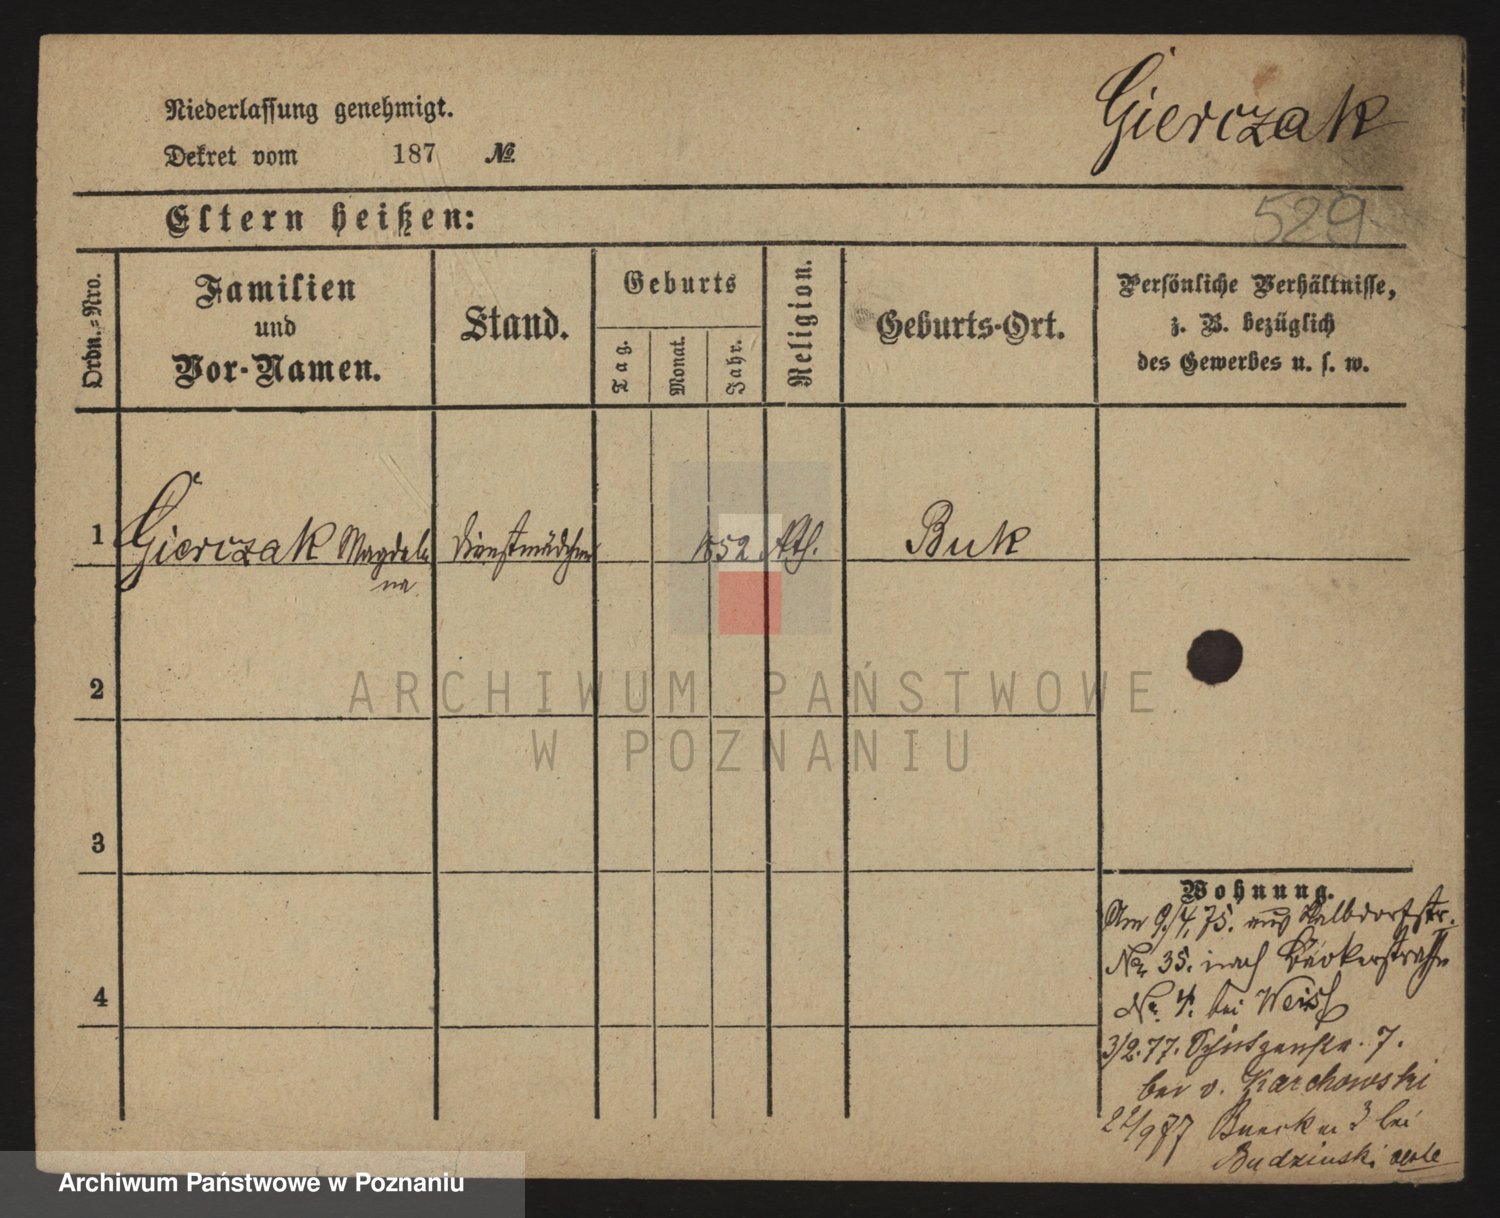 Gierczak
Niederlassung genehmigt.
Dekret vom 187 №
529
Eltern heißen:
Ordn.=Nro.
Familien
und
Vor-Namen.
Stand.
Geburts
Tag.
Monat.
Jahr.
Religion.
Geburts-Ort.
Persönliche Verhältnisse,
z. B. bezüglich
des Gewerbes u. s. w.
1 Gierczak Magdale Dienstmädchen 1852 Kth. Buk
na
2
3
4
Wohnung.
Am 9/4.75. aus Halbdorfstr.
No 35. nach Bäckerstraße
No 4. bei Weiss
3/2.77. Schützenstr. 7.
bei v. Karchowski
22/9 77 3 bei
Budzinski
ARCHIWUM PAŃSTWOWE
W POZNANIU
Archiwum Państwowe w Poznaniu